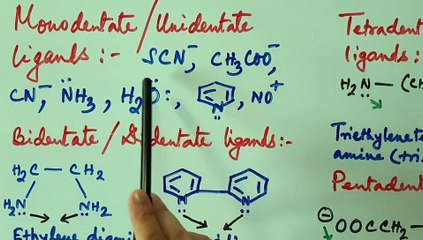 Monodentate / Unidentate
ligands :- SCN⁻, CH₃COO⁻,
CN⁻, N̈H₃, H₂Ö:, N̈, NO⁺
Bidentate / Didentate ligands:-
H₂C — CH₂
H₂N̈ N̈H₂
N̈ N̈
Ethylene diami
Tetradent
ligands:
H₂N̈ — (CH
Triethylenete
amine (tri
Pentaden
⊖OOCCH₂ —